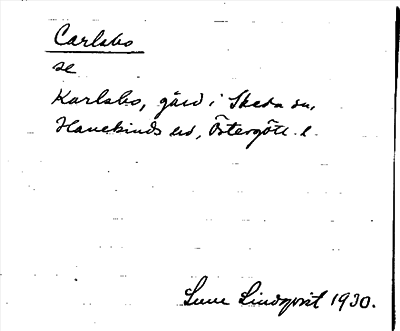 Carlsbo
se
Karlsbo, gård i Skeda sn,
Hanekinds hd, Östergötl. l.
Sune Lindqvist 1930.